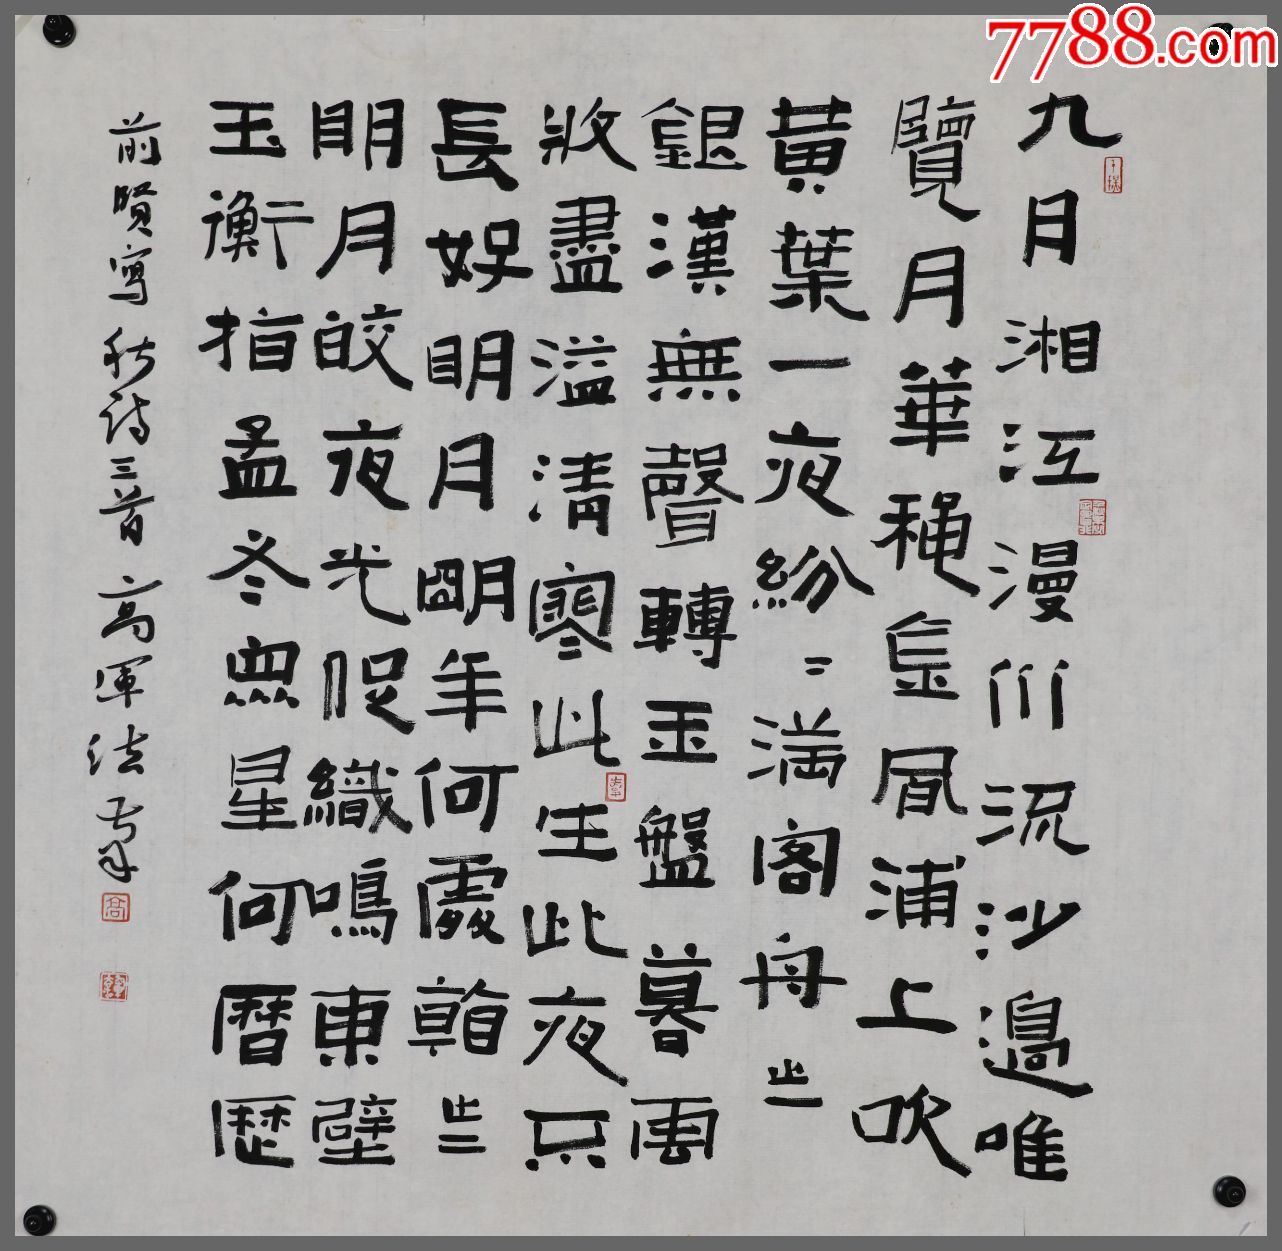 九月湘江漫水流沙邊唯
覽月華穐金風浦上吹
黃葉一夜紛〻滿客舟 之一
銀漢無聲轉玉盤暮雲
收盡溢清寒此生此夜不
長好明月明年何處看 之二
明月皎夜光促織鳴東壁
玉衡指孟冬眾星何曆歷
前賢寫秋詩三首 高軍法書
7788.com